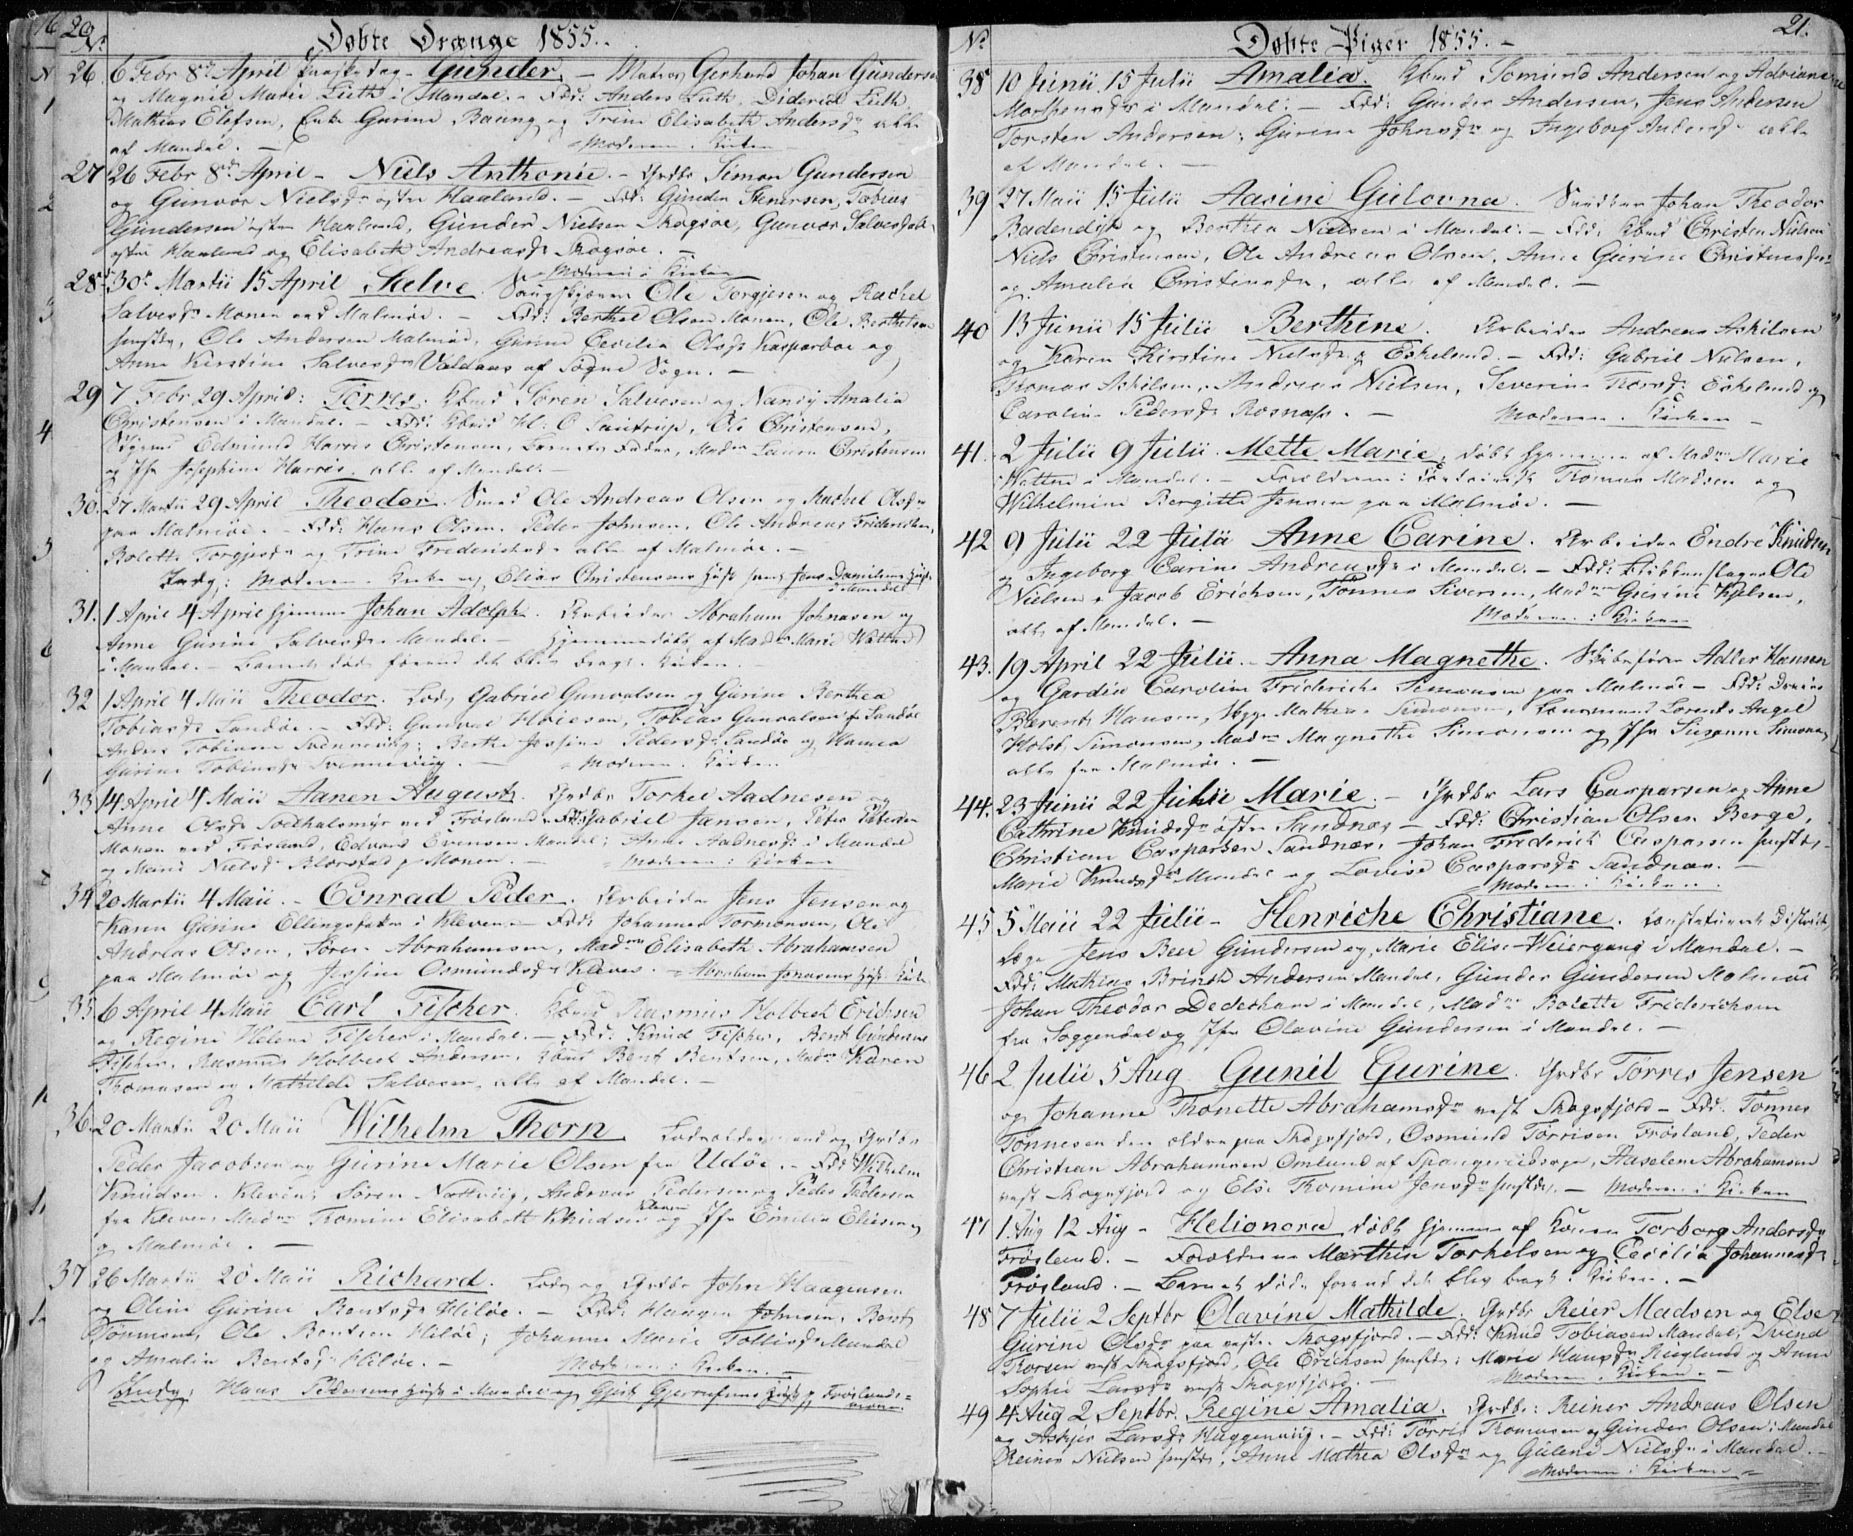 20.
Døbte Drænge 1855.
No
26. 6 Febr 8de April Gunder. – Matros Gerhard Johan Gundersen
og Magnil Marie Lüth i Mandal. – Fdd: Anders Lüth, Diderich Lüth
Mathias Elefsen, Enke Gurine Baung og Trine Elisabeth Andersdr alle
af Mandal. – Moderen i Kirken
27 26 Febr 8de April – Niels Anthonie. – Grdbr Simon Gundersen
og Gunvor Nielsdr østre Haaland. – Fdd: Gunder Stenersen, Tobias
Gundersen østre Haaland, Gunder Nielsen Skogsøe, Gunvor Salvesdatr
østre Haaland og Elisabeth Andreasdr Skogsøe. –
Moderen i Kirken
28 30te Martii 15 April Salve. Ole Torgjesen og Rachel
Salvesdr Monen ved Malmøe. – Fdd: Berthel Olsen Monen, Ole Berthelsen
sammestds, Ole Andersen Malmøe, Gurine Cecilia Olsdr Kasparboe og
Anne Kirstine Salvesdr Valdaas af Søgne Sogn. –
29 7 Febr 29 April: Torres. Søren Salvesen og Nancy Amalia
Christensen i Mandal. – Fdd: H. C. Santrup, Ole Christensen,
Edmund Harris Christensen, Barnets Fader, Madm Laura Christensen
og Jfr Josephine Harris, alle af Mandal. –
30. 27 Martii 29 April Theodor. Smed Ole Andreas Olsen og Rachel Olsdr
paa Malmøe. – Fdd: Hans Olsen, Peder Johnsen, Ole Andreas Friderichsen,
Bolette Torgjesdr og Trine Frederichsdr alle af Malmøe. –
Indg: Moderen i Kirke og Elias Christensens Hust samt Jens Danielsens Hust
i Mandal
31. 1 April 4 April hjemme Johan Adolph. Arbeider Abraham Johnasen og
Anne Gurine Salvesdr Mandal. – Hjemmedøbt af Madm Marie Watne
i Mandal. – Barnet død førend det blev bragt i Kirken. –
32 1 April 4 Maii Theodor. Lods Gabriel Gunvalsen og Gurine Berthea
Tobiasdr Sandøe. – Fdd: Gunval Tobias Gunvalsen fr Sandøe
Anders Tobiasen Svennevig; Berthe Jessine Pedersdr Sandøe og Hanna
Gurine Tobiasdr Svennevig. – Moderen i Kirken
33 14 April 4 Maii Aanen August. Grdbr Torkel Aadnesen og
Anne Olsdr ved Frøsland. Fdd: Gabriel Jansen, Peter Petersen
Monen ved Frøsland, Edvard Evensen Mandal; Anne Aadnesdr i Mandal
og Marie Nielsdr Blørstad p Monen. – Moderen i Kirken
34 20 Martii 4 Maii. – Conrad Peder. Arbeider Jens Jensen og
Karen Gurine Ellingsdatter i Kleven – Fdd: Johannes Tormonsen, Ole
Andreas Olsen, Søren Abrahamsen, Madme Elisabeth Abrahamsen
paa Malmøe og Jessine Osmundsdr Kleven. – Abraham Jonasens Hust i Kirke
35. 6 April 4 Maii Carl Fischer. Rasmus Holbech Erichsen
og Regine Helene Fischer i Mandal. – Fdd: Knud Fischer, Bent Gundersen
Fischer, Rasmus Holbech Andersen, Bent Bentsen, Madm Karen
Thomasen og Mathilde Salvesen, alle af Mandal. –
36. 20 Martii 20 Maii Wilhelm Thorn. Lodsoldermand og Grdbr
Peder Jacobsen og Gurine Marie Olsen fra Udøe. – Fdd: Wilhelm
Knudsen Kleven, Søren Nottviig, Andreas Pedersen og Peder Pedersen
fra Kleven, Madm Thomine Elisabeth Knudsen Kleven og Jfr Emilia Eliesen
p Malmøe. –
37 26 Martii 20 Maii Richard. Lods og Grdbr John Haagensen
og Oline Gurine Bentsdr Hilløe. – Fdd: Haagen Johnsen, Bent
Tønnesen, Ole Bentsen Hilløe; Johanne Marie Tollisdr Mandal
og Amalia Bentsdr Hilløe. – Moderen i Kirken. –
Indg: Hans Pedersens Hust i Mandal og Gjert Gjertsens Hust p Frøslands-
monen.
21.
No
Døbte Piger 1855. –
38 10 Junii 15 Julii Amalia. Tomine Andersen og Adriane
i Mandal. – Fdd: Gunder Andersen, Jens Andersen
Torsten Andersen, Gurine Johnsdr og Ingeborg Andersdr alle
af Mandal. –
39 27 Maii 15 Julii Aasine Gulovna. Snedker Johan Theodor
Badendyk og Berthea Nielsen i Mandal. – Fdd: Christen Nielsen
Niels Christensen, Ole Andreas Olsen, Anne Gurine Christensdr
og Amalia Christensdr, alle af Mandal. –
40 13 Junii 15 Julii Berthine. Arbeider Andreas Askilsen
og Karen Kirstine Nielsdr p Eskelund. – Fdd: Gabriel Nielsen,
Thomas Askilsen, Andreas Nielsen, Severine Thorsdr Eskelund og
Caroline Pedersdr Rosnæss. – Moderen i Kirken –
41. 2 Julii 9 Julii. Mette Marie, døbt hjemme af Madm Marie
Watne i Mandal. – Forældrene: Thomas Madsen og
Wilhelmine Bergitte Jensen paa Malmøe. –
42 9 Julii 22 Julii Anne Carine. Arbeider Endre Knudsen
og Ingeborg Carine Andreasdr i Mandal. – Fdd: Ole
Nielsen, Jacob Erichsen, Tønnes Siversen, Madm Gurine Kjelsen,
alle af Mandal. – Moderen i Kirken
43. 19 April 22 Julii. – Anna Magnethe. Skibsfører Adler Hansen
og Gardia Caroline Frideriche Simonsen paa Malmøe – Fdd:
Berent Hansen, Mathias Simonsen, Lorents Angel
Holst Simonsen, Madme Magnethe Simonsen og Jfr Susanne Simonsen
alle fra Malmøe. –
44. 23 Junii 22 Julii Marie. – Grdbr Lars Casparsen og Anne
Cathrine Knudsdr østre Sandnæs – Fdd: Christian Olsen Berge,
Christian Casparsen Sandnæs, Johan Frederich Casparsen sammestds.
Marie Knudsdr Mandal og Lovise Casparsdr Sandnæs. –
Moderen i Kirken.
45 5 Maii 22 Julii – Henriche Christiane. Constitueret District
Læge Jens Bee Gundersen og Marie Elise Weiergang i Mandal. –
Fdd: Mathias Brinch Andersen Mandal, Gunder Gundersen Malmøe
Johan Theodor Dedekam i Mandal, Madme Bolette Friderichsen
fra Soggendal og Jfr Olavine Gundersen i Mandal. –
46 2 Julii 5 Aug Gunil Gurine. Grdbr Tørres Jensen
og Johanne Thonette Abrahamsdr vest Skogsfjord – Fdd: Tønnes
Tønnesen den ældre paa Skogsfjord, Osmund Tørrisen Frøsland, Peder
Christian Abrahamsen Omlund af Spangereidsogn, Aaselene Abrahamsen
vest Skogsfjord og Else Thomine Jensdr sammestds. – Moderen i Kirken
47 1. Aug 12 Aug – Helionora døbt hjemme af Konen Torborg Andersdr
Frøsland. – Forældrene Marthin Torkelsen og Cecilia Johannesdr
Frøsland. – Barnet døde førend det blev bragt i Kirken. –
48 7 Julii 2 Septbr Olavine Mathilde. Grdbr Reier Madsen og Else
Gurine Olsdr paa vestre Skogsfjord. – Fdd: Knud Tobiasen Mandal, Svend
Thorsen vest Skogsfjord, Ole Erichsen sammestds; Marie Hansdr Rieglund og Anne
Sophie Larsdr vest Skogsfjord. – Moderen i Kirken. –
49 4 Aug 2 Septbr. Regine Amalia. Grdbr: Reiner Andreas Olsen
og Askjer Larsdr Haggenviig. – Fdd: Tørris Thomesen og Gunder Olsen i Mandal
Reiner Nielsen sammestds, Anne Mathea Olsdr og Gulene Nielsdr i Mandal. –
Moderen i Kirken